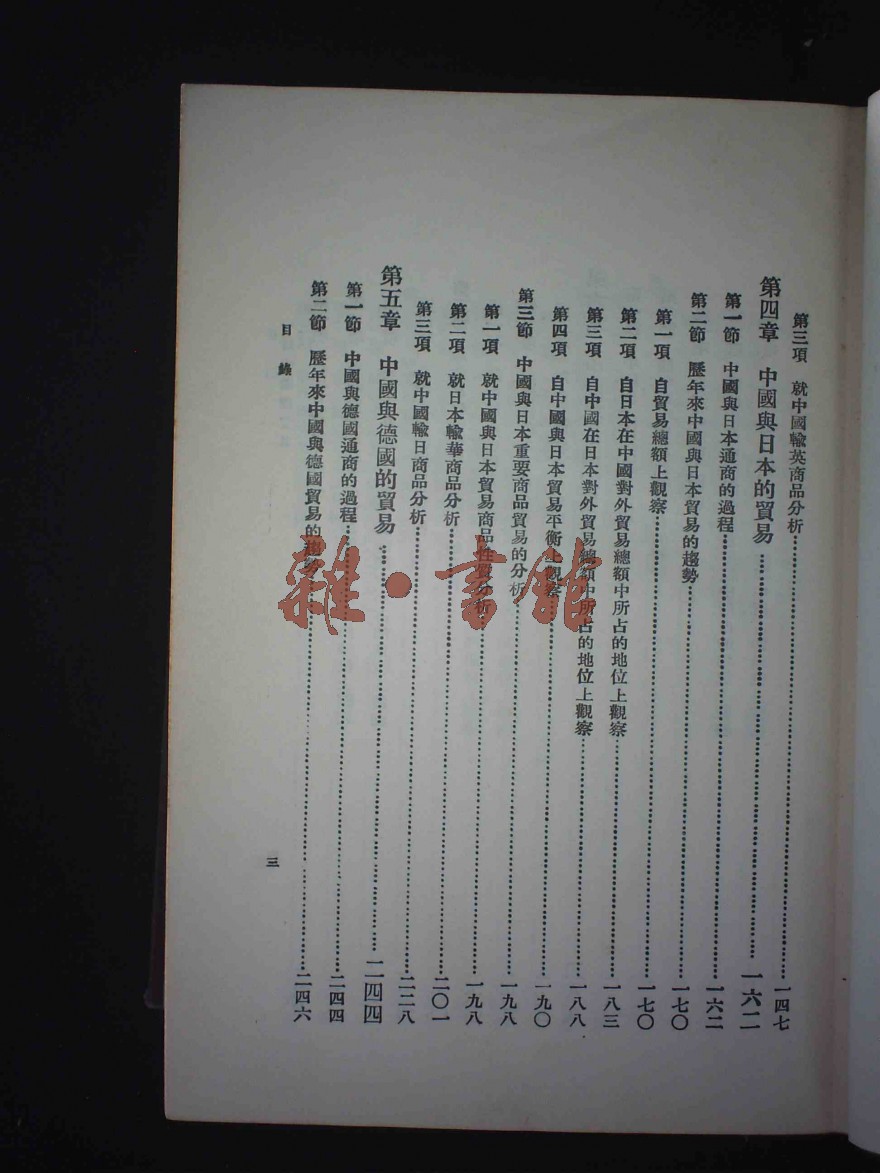 第三項　就中國輸英商品分析……一四七
第四章　中國與日本的貿易……一六二
第一節　中國與日本通商的過程……一六二
第二節　歷年來中國與日本貿易的趨勢……一七〇
第一項　自貿易總額上觀察……一七〇
第二項　自日本在中國對外貿易總額中所占的地位上觀察……一八三
第三項　自中國在日本對外貿易總額中所占的地位上觀察……一八八
第四項　自中國與日本貿易平衡上觀察……一九〇
第三節　中國與日本重要商品貿易的分析……一九八
第一項　就中國與日本貿易商品性質分析……一九八
第二項　就日本輸華商品分析……二〇一
第三項　就中國輸日商品分析……二二八
第五章　中國與德國的貿易……二四四
第一節　中國與德國通商的過程……二四四
第二節　歷年來中國與德國貿易的趨勢……二四六
目錄
三
雜·書館